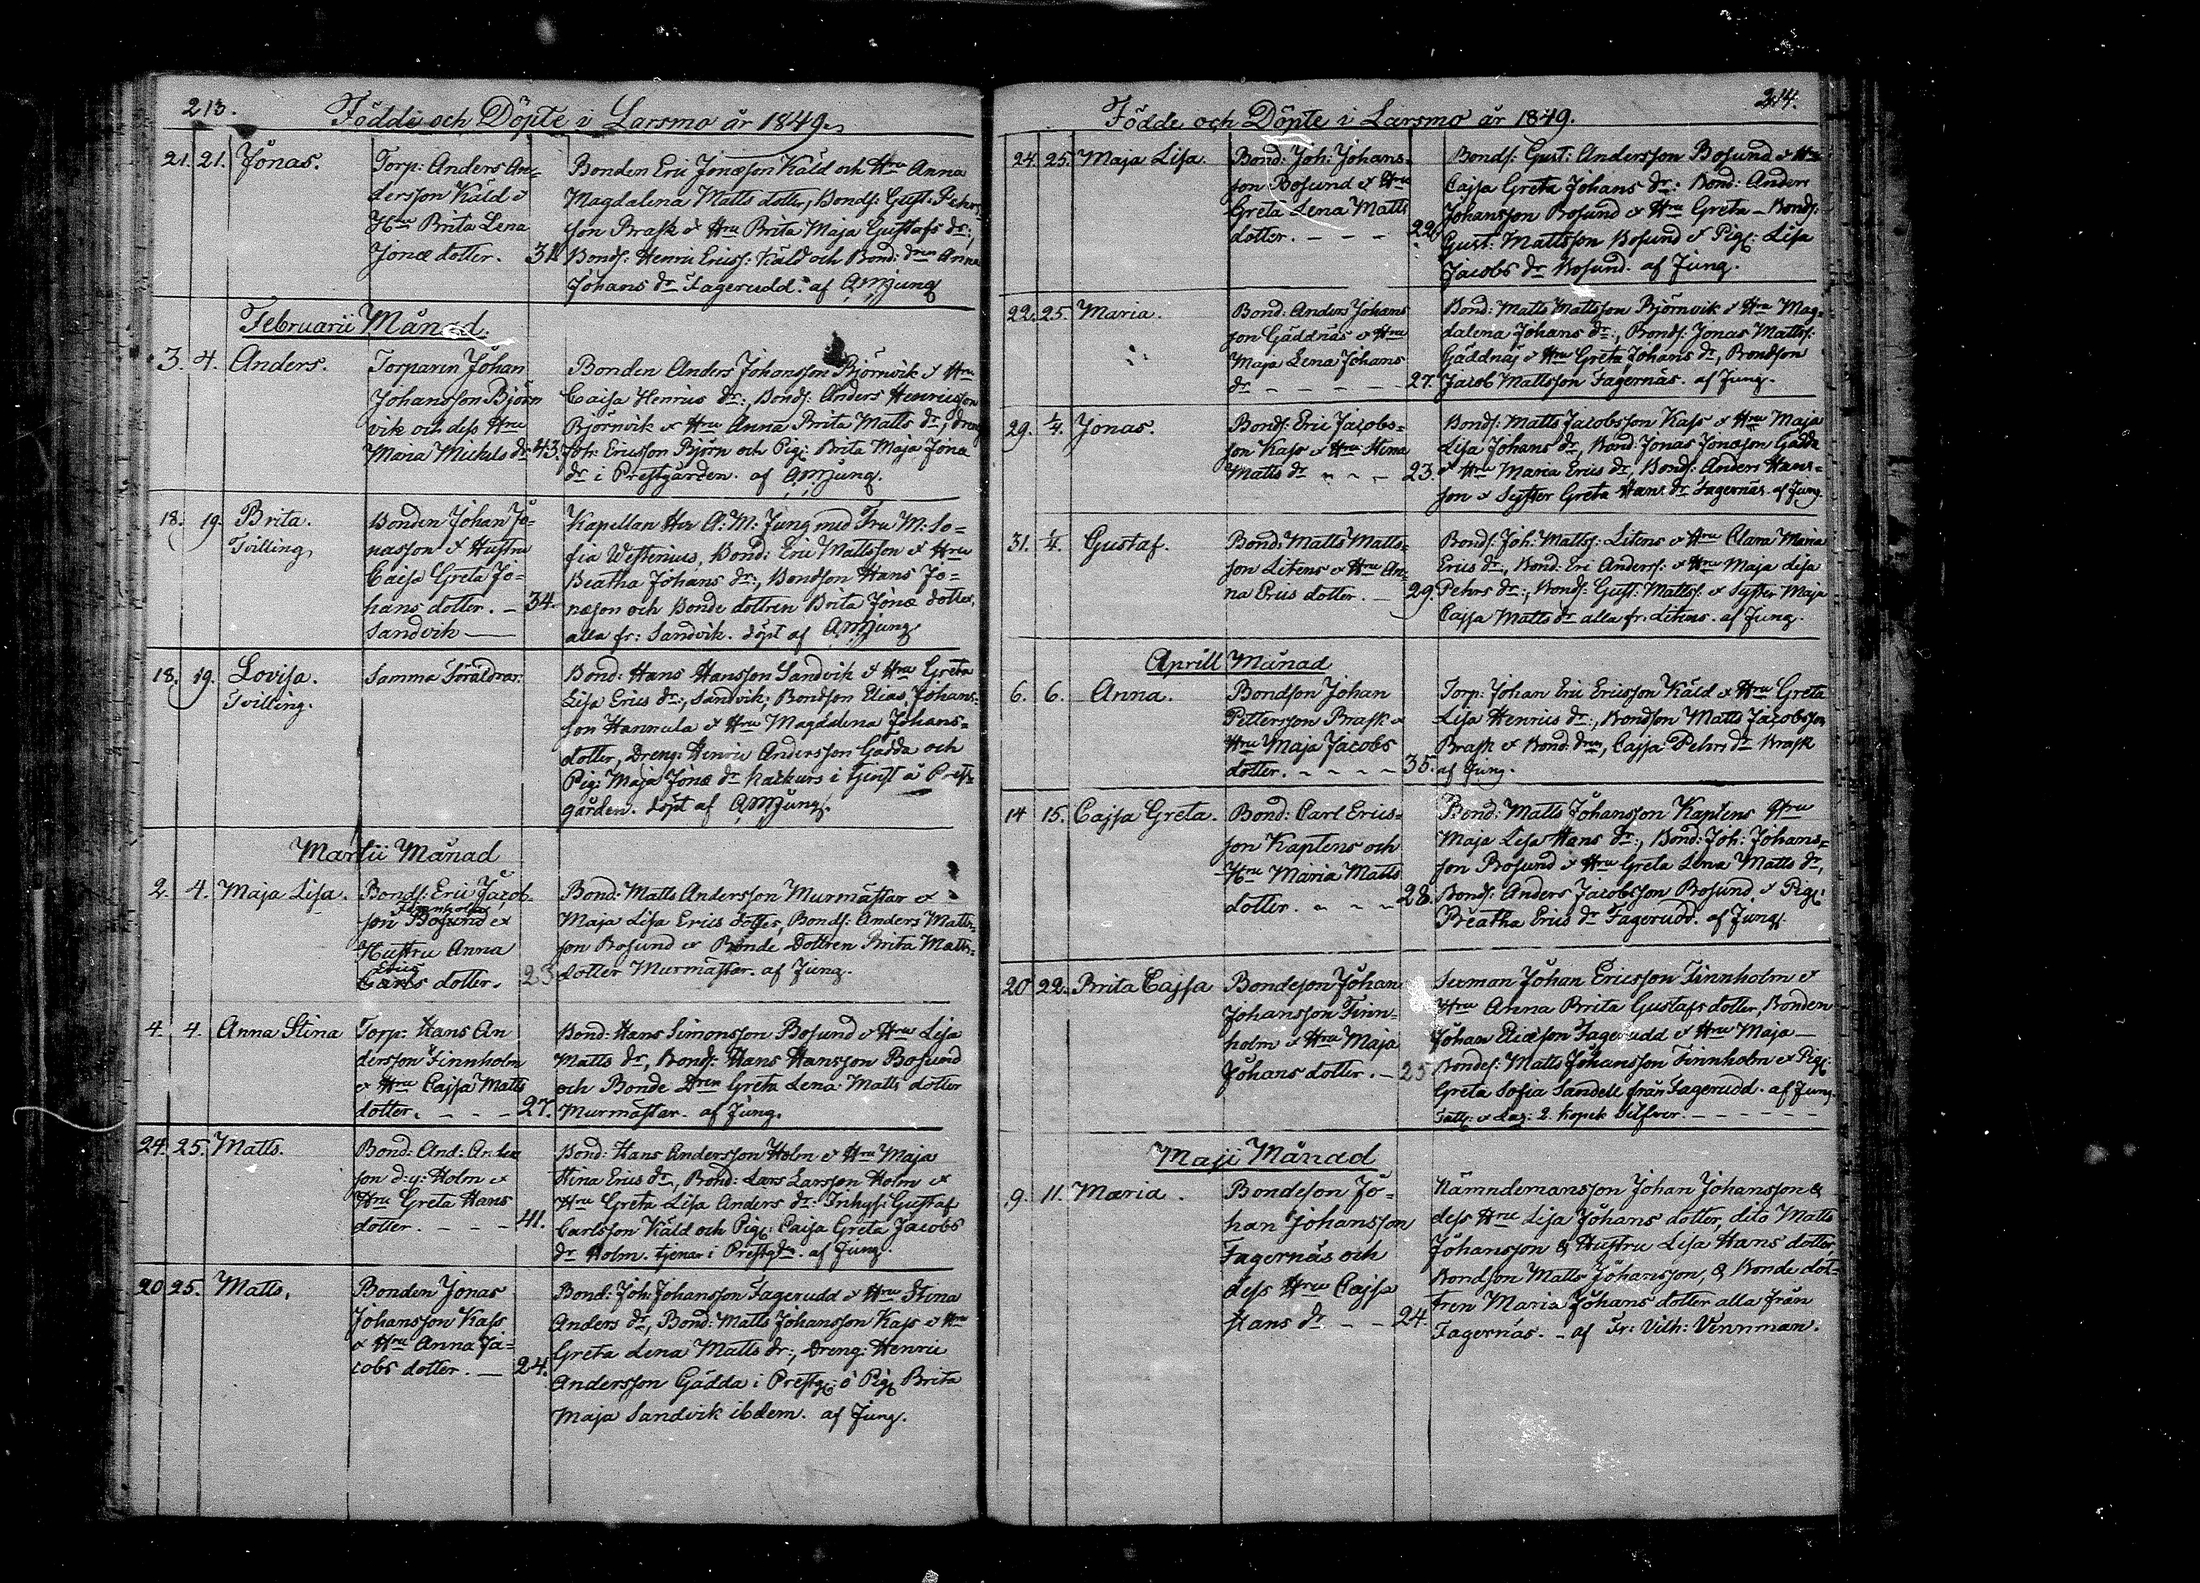 213.
Födde och Döpte i Larsmo år 1849.
21. 21. Jonas.
Torp: Anders An-
dersson Käld &
Hru Brita Lena
Jonæ dotter. 31.
Bonden Eric Jonæson Käld och Hru Anna
Magdalena Matts dotter, Bonds: Gust: Pehrs-
son Brask & Hru Brita Maja Gustafs dr:,
Bonds: Henric Ericss: Käld och Bond: dren Anna
Johans dr Fagerudd. af AMJung
Februarii Månad.
3. 4. Anders.
Torparen Johan
Johansson Björn
vik och dess Hru
Maria Mickels dr 43.
Bonden Anders Johansson Björnvik & Hru
Caisa Henrics dr:, Bonds: Anders Henricsson
Björnvik & Hru Anna Brita Matts dr, dreng
Joh: Ericsson Björn och Pig: Brita Maja Jonæ
dr i Prestgården. af AMJung.
18. 19. Brita.
Tvilling,
Bonden Johan Jo-
nasson & Hustru
Caisa Greta Jo-
hans dotter. — 34.
Sandvik —
Kapellan Her A: M: Jung med Fru M: So-
fia Westenius, Bond: Eric Mattsson & Hru
Beatha Johans dr:, Bondson Hans Jo-
næson och Bonde dottren Brita Jonæ dotter,
alla fr: Sandvik. döpt af AMJung
18. 19. Lovisa.
Tvilling.
Samma Föräldrar.
Bond: Hans Hansson Sandvik & Hru Greta
Lisa Erics dr:, Sandvik; Bondson Elias Johans-
son Hannula & Hru Magdalena Johans-
dotter, Dreng: Henric Andersson Gädda och
Pig: Maja Jonæ dr i tjenst å Prest-
gården. döpt af AMJung.
Martii Månad
2. 4. Maja Lisa.
Bonds: Eric Jacob-
son Bosund &
Hustru Anna
Erics
Carls dotter. 23
Bond: Matts Andersson Murmästar &
Maja Lisa Erics dotter, Bonds: Anders Matts-
son Bosund & Bonde Dottren Brita Matts-
dotter Murmästar. af Jung.
4. 4. Anna Stina
Torp: Hans An
dersson Finnholm
& Hru Cajsa Matts
dotter. - - - 27.
Bond: Hans Simonsson Bosund & Hru Lisa
Matts dr, Bonds: Hans Hansson Bosund
och Bonde Dren Greta Lena Matts dotter
Murmästar. af Jung.
24. 25. Matts.
Bond: And: Anders
son d: y: Holm &
Hru Greta Hans
dotter. - - - 41.
Bond: Hans Andersson Holm & Hru Maja
Stina Erics dr, Bond: Lars Larsson Holm &
Hru Greta Lisa Anders dr: Inhys: Gustaf
Carlsson Käld och Pig: Caisa Greta Jacobs
dr Holm. tjenar i Prestgdn. af Jung.
20 25. Matts.
Bonden Jonas
Johansson Kass
& Hru Anna Ja-
cobs dotter. — 24.
Bond: Joh: Johansson Fagerudd & Hru Stina
Anders dr, Bond: Matts Johansson Kass & Hru
Greta Lena Matts dr:, Dreng: Henric
Andersson Gädda i Prestg: o Pig: Brita
Maja Sandvik ibdem. af Jung.
214.
Födde och Döpte i Larsmo år 1849.
24. 25. Maja Lisa.
Bond: Joh: Johans-
son Bosund & Hru
Greta Lena Matts
dotter. - - - 22.
Bonds: Gust: Andersson Bosund & Hru
Cajsa Greta Johans dr: Bond: Anders
Johansson Bosund & Hru Greta — Bonds:
Gust: Mattsson Bosund & Pig: Lisa
Jacobs dr Bosund. af Jung.
22. 25. Maria.
Bond: Anders Johans
son Gäddnäs & Hru
Maja Lena Johans
dr - - - - - 27.
Bond: Matts Mattsson Björnvik & Hru Mag-
dalena Johans dr:, Bonds: Jonas Mattss:
Gäddnäs & Hru Greta Johans dr, Bondson
Jacob Mattsson Fagernäs. af Jung.
29. 1/4. Jonas.
Bonds: Eric Jacobs-
son Kass & Hru Stina
Matts dr - - - 23.
Bonds: Matts Jacobsson Kass & Hru Maja
Lisa Johans dr, Bond: Jonas Jonæson Gädda
& Hru Maria Erics dr, Bonds: Anders Hans-
son & Syster Greta Hans dr Fagernäs. af Jung
31. 1/4. Gustaf.
Bond: Matts Matts-
son Litens & Hru An-
na Erics dotter. — 29.
Bonds: Joh: Mattss: Litens & Hru Clara Maria
Erics dr:, Bond: Eric Anderss: & Hru Maja Lisa
Pehrs dr:, Bonds: Gust: Mattss: & Syster Maja
Cajsa Matts dr alla fr: Litens. af Jung.
Aprill Månad
6. 6. Anna.
Bondson Johan
Pettersson Brask &
Hru Maja Jacobs
dotter. - - - - 35.
Torp: Johan Eric Ericsson Käld & Hru Greta
Lisa Henrics dr:, Bondson Matts Jacobsson
Brask & Bond: dren, Cajsa Pehrs dr Brask
af Jung.
14 15. Cajsa Greta.
Bond: Carl Erics-
son Kaptens och
Hru Maria Matts
dotter. - - - 28.
Bond: Matts Johansson Kaptens Hru
Maja Lisa Hans dr:, Bond: Joh: Johans-
son Bosund & Hru Greta Lena Matts dr,
Bonds: Anders Jacobsson Bosund & Pig:
Beatha Erics dr Fagerudd. af Jung.
20 22. Brita Cajsa
Bondeson Johan
Johansson Finn-
holm & Hru Maja
Johans dotter. — 25
Sexman Johan Ericsson Finnholm &
Hru Anna Brita Gustafs dotter, Bonden
Johan Fagerudd & Hru Maja —
Bondes: Matts Johansson Finnholm & Pig:
Greta Sofia Sandell från Fagerudd. af Jung.
Fattg: & Laz: 2. kopek Silfver. - - - - -
Maji Månad
9. 11. Maria.
Bondeson Jo-
han Johansson
Fagernäs och
dess Hru Cajsa
Hans dr - - 24.
Nämndemansson Johan Johansson &
dess Hru Lisa Johans dotter, dito Matts
Johansson & Hustru Lisa Hans dotter,
Bondson Matts Johansson, & Bonde dot-
tren Maria Johans dotter alla från
Fagernäs. - af Fr: Vilh: Vennman.